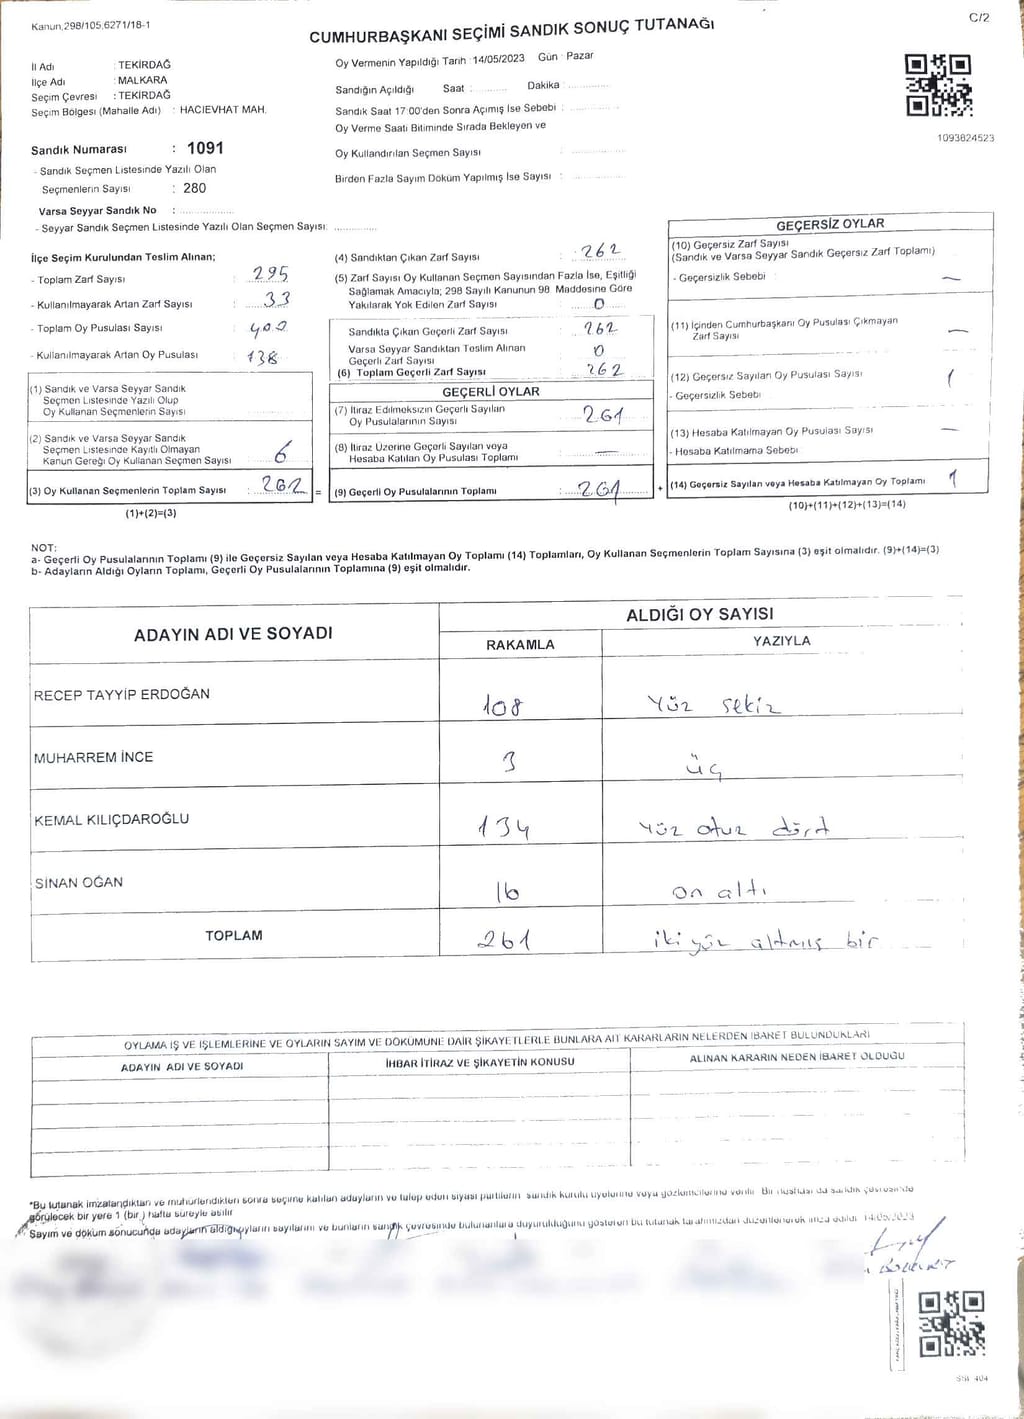 Kanun,298/105,6271/18-1
C/2
CUMHURBAŞKANI SEÇİMİ SANDIK SONUÇ TUTANAĞI
İl Adı : TEKİRDAĞ
İlçe Adı : MALKARA
Seçim Çevresi : TEKİRDAĞ
Seçim Bölgesi (Mahalle Adı) : HACIEVHAT MAH.
Oy Vermenin Yapıldığı Tarih : 14/05/2023 Gün : Pazar
Sandığın Açıldığı Saat : Dakika :
Sandık Saat 17:00'den Sonra Açımış İse Sebebi :
Oy Verme Saati Bitiminde Sırada Bekleyen ve
Oy Kullandırılan Seçmen Sayısı :
Birden Fazla Sayım Döküm Yapılmış İse Sayısı :
1093824523
Sandık Numarası : 1091
- Sandık Seçmen Listesinde Yazılı Olan
Seçmenlerin Sayısı : 280
Varsa Seyyar Sandık No :
- Seyyar Sandık Seçmen Listesinde Yazılı Olan Seçmen Sayısı:
İlçe Seçim Kurulundan Teslim Alınan;
- Toplam Zarf Sayısı : 295
- Kullanılmayarak Artan Zarf Sayısı : 33
- Toplam Oy Pusulası Sayısı : 400
- Kullanılmayarak Artan Oy Pusulası : 138
(1) Sandık ve Varsa Seyyar Sandık
Seçmen Listesinde Yazılı Olup
Oy Kullanan Seçmenlerin Sayısı
(2) Sandık ve Varsa Seyyar Sandık
Seçmen Listesinde Kayıtlı Olmayan
Kanun Gereği Oy Kullanan Seçmen Sayısı : 6
(3) Oy Kullanan Seçmenlerin Toplam Sayısı : 262 =
(1)+(2)=(3)
(4) Sandıktan Çıkan Zarf Sayısı : 262
(5) Zarf Sayısı Oy Kullanan Seçmen Sayısından Fazla İse, Eşitliği
Sağlamak Amacıyla; 298 Sayılı Kanunun 98. Maddesine Göre
Yakılarak Yok Edilen Zarf Sayısı : 0
Sandıkta Çıkan Geçerli Zarf Sayısı : 262
Varsa Seyyar Sandıktan Teslim Alınan
Geçerli Zarf Sayısı : 0
(6) Toplam Geçerli Zarf Sayısı : 262
GEÇERLİ OYLAR
(7) İtiraz Edilmeksizin Geçerli Sayılan
Oy Pusulalarının Sayısı : 261
(8) İtiraz Üzerine Geçerli Sayılan veya
Hesaba Katılan Oy Pusulası Toplamı : —
(9) Geçerli Oy Pusulalarının Toplamı : 261 +
GEÇERSİZ OYLAR
(10) Geçersiz Zarf Sayısı
(Sandık ve Varsa Seyyar Sandık Geçersiz Zarf Toplamı)
- Geçersizlik Sebebi : —
(11) İçinden Cumhurbaşkanı Oy Pusulası Çıkmayan
Zarf Sayısı —
(12) Geçersiz Sayılan Oy Pusulası Sayısı 1
- Geçersizlik Sebebi
(13) Hesaba Katılmayan Oy Pusulası Sayısı —
- Hesaba Katılmama Sebebi
(14) Geçersiz Sayılan veya Hesaba Katılmayan Oy Toplamı 1
(10)+(11)+(12)+(13)=(14)
NOT:
a- Geçerli Oy Pusulalarının Toplamı (9) ile Geçersiz Sayılan veya Hesaba Katılmayan Oy Toplamı (14) Toplamları, Oy Kullanan Seçmenlerin Toplam Sayısına (3) eşit olmalıdır. (9)+(14)=(3)
b- Adayların Aldığı Oyların Toplamı, Geçerli Oy Pusulalarının Toplamına (9) eşit olmalıdır.
ADAYIN ADI VE SOYADI
ALDIĞI OY SAYISI
RAKAMLA YAZIYLA
RECEP TAYYİP ERDOĞAN 108 Yüz sekiz
MUHARREM İNCE 3 üç
KEMAL KILIÇDAROĞLU 134 yüz otuz dört
SİNAN OĞAN 16 on altı
TOPLAM 261 iki yüz altmış bir
OYLAMA İŞ VE İŞLEMLERİNE VE OYLARIN SAYIM VE DÖKÜMÜNE DAİR ŞİKAYETLERLE BUNLARA AİT KARARLARIN NELERDEN İBARET BULUNDUKLARI
ADAYIN ADI VE SOYADI İHBAR İTİRAZ VE ŞİKAYETİN KONUSU ALINAN KARARIN NEDEN İBARET OLDUĞU
*Bu tutanak imzalandıktan ve mühürlendikten sonra seçime katılan adayların ve talep eden siyasi partilerin sandık kurulu üyelerine veya gözlemcilerine verilir. Bir nüshası da sandık çevresinde
görülecek bir yere 1 (bir ) hafta süreyle asılır
Sayım ve döküm sonucunda adayların aldığı oyların sayılarını ve bunların sandık çevresinde bulunanlara duyurulduğunu gösteren bu tutanak tarafımızdan düzenlenerek imza edildi. 14/05/2023